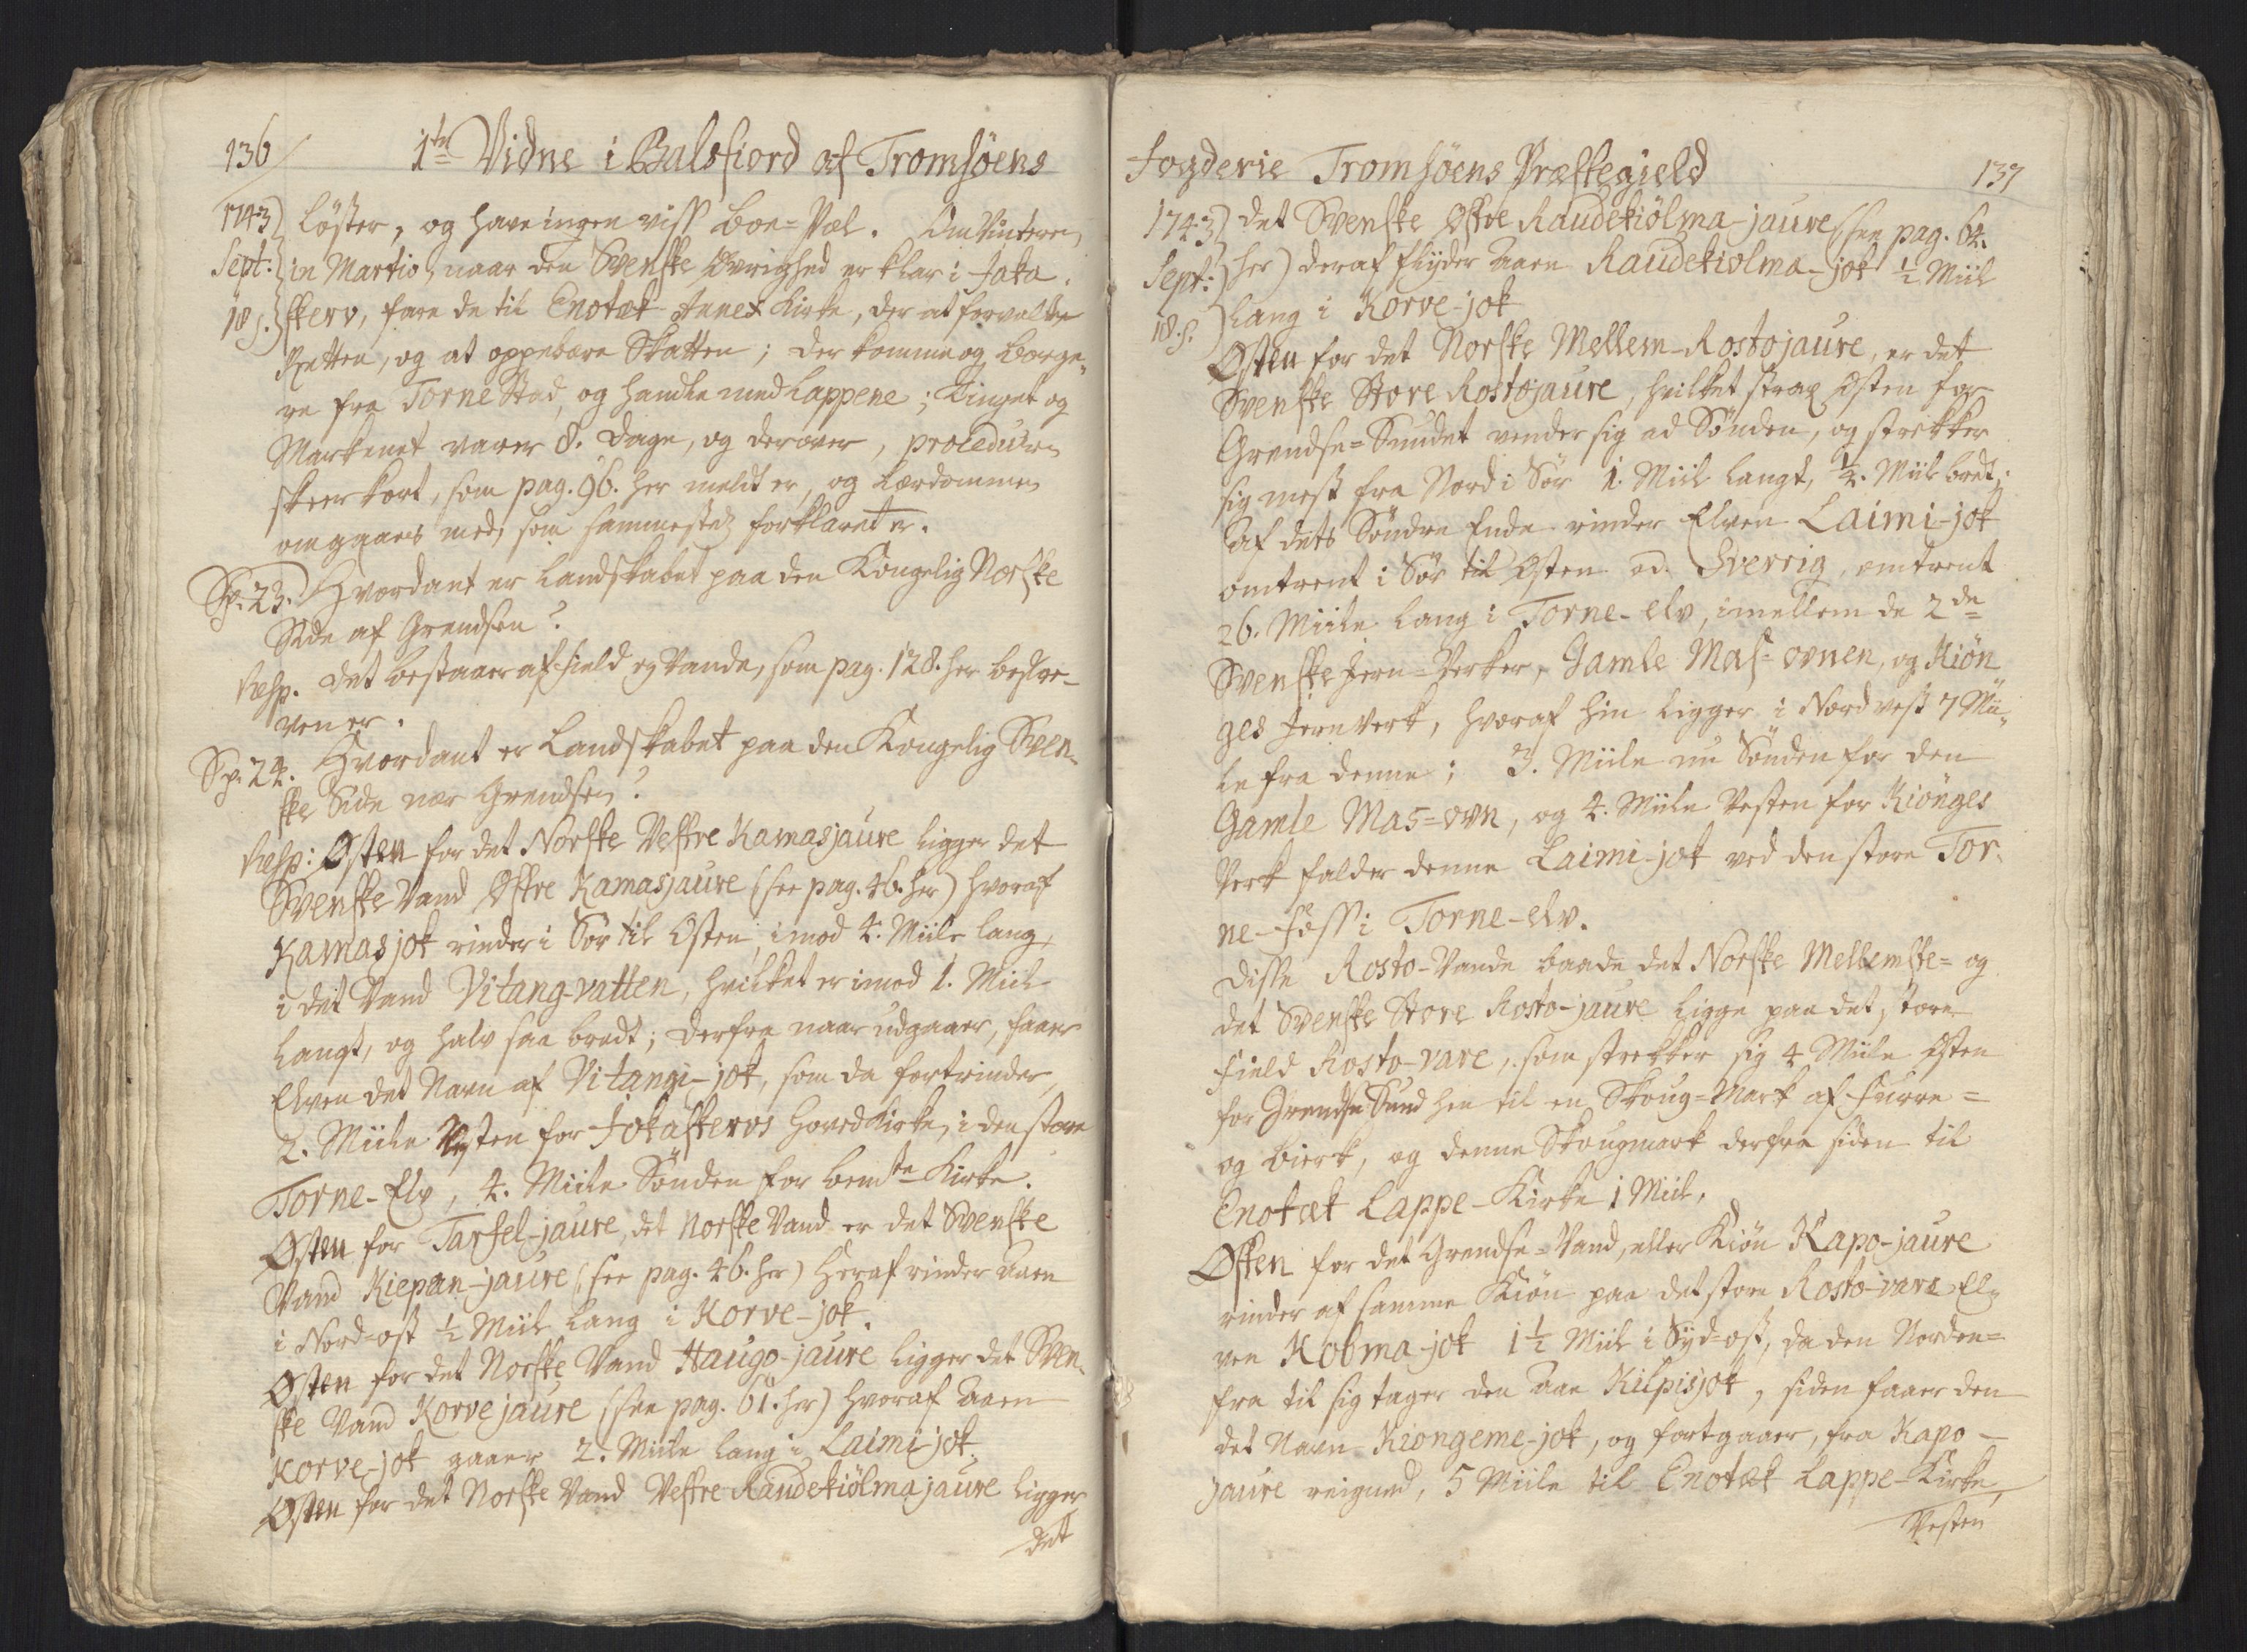 136
1te Vidne i Balsfiord af Tromsøens
1743 løster, og have ingen viss boe-Pæl. Om Vinteren
Sept: in Martio, naar den Svenske Øvrighed er klar i Joka-
18 s. skerv, fare de til Enotæk Annex Kirke, der at forvalte
Retten, og at oppebære Skatten; der komme og Borge-
re fra Torne Stad, og handle med Lappene; Tinget og
Markenet varer 8. Dage, og derover, proceduren
skeer kort, som pag. 96. her meldt er, og Lærdommen
omgaaes med, som sammestedz forklaret er.
Sp. 23. Hvordant er Landskabet paa den Kongelig Norske
Side af Grendsen?
Resp. Det bestaaer af Field og Vande, som pag. 128. her beskre-
ven er.
Sp. 24. Hvordant er Landskabet paa den Kongelig Sven-
ske Side nær Grendsen?
Resp: Østen for det Norske Vestre Kamasjaure ligger det
Svenske Vand Østre Kamasjaure (see pag. 46. her) hvoraf
Kamasjok rinder i Sør til Østen, imod 4. Miile lang,
i det Vand Vitang-vatten, hvilket er imod 1. Miil
langt, og halv saa bredt; derfra naar udgaaer, faaer
Elven det Navn af Vitangi-jok, som da fortrinder,
2. Miile Vesten for Jokaskervs Hoved Kirke, i den store
Torne-Elv, 4. Miile Sønden for bemte Kirke.
Østen for Tarfel-jaure, det Norske Vand er det Svenske
Vand Kiepan-jaure (see pag. 46. her) Heraf rinder Aaen
i Nord-ost ½ Miil lang i Korve-jok.
Østen for det Norske Vand Haugo-jaure ligger det Sven-
ske Vand Korvejaure (see pag. 61. her) hvoraf Aaen
Korve-jok gaaer 2. Miile lang i Laimi-jok.
Østen for det Norske Vand Vestre Raudekiølmajaure ligger
det
Fogderie Tromsøens Præstegield
137
1743 det Svenske Østre Raudekiølma-jaure (see pag. 64.
Sept: her) deraf flyder Aaen Raudekiolma-jok ½ Miil
18. s. lang i Korve-jok
Østen for det Norske Mellem-Rostojaure, er det
Svenske Store Rostojaure, hvilket strax Østen for
Grendse-Sundet vender sig ad Sønden, og strekker
sig mest fra Nord i Sør 1. Miil langt, ¼. Miil bredt;
Af dets Søndre Ende rinder Elven Laimi-jok
omtrent i Sør til Østen ad Sverrig, omtrent
26. Miile lang i Torne-elv, imellem de 2de
Svenske Jern-Verker, Gamle Mas-ovnen, og Kiøn-
ges Jernverk, hvoraf hin ligger i Nordvest 7 Mii-
le fra denne; 3. Miile nu Sønden for den
Gamle Mas-ovn, og 4. Miile Vesten for Kiønges
Verk falder denne Laimi-jok ved den store Tor-
ne-Foss i Torne-elv.
Disse Rosto-Vande baade det Norske Mellemste- og
det Svenske Store Rosto-jaure ligge paa det store
Field Rosto-vare, som strekker sig 4 Miile Østen
for Grendse Sund hen til en Skoug-Mark af Furre-
og Birk, og denne Skougmark derfra siden til
Enotæk Lappe-Kirke 1 Miil,
Østen for det Grendse-Vand, eller Kiøn Kapo-jaure
rinder af samme Kiøn paa det store Rosto-vare El-
ven Kobma-jok 1½ Miil i Syd-ost, da den Norden-
fra til sig tager den Aae Kilpisjok, siden faaer den
det Navn Kiongeme-jok, og fortgaaer, fra Kapo-
jaure reignud, 5 Miile til Enotæk Lappe-Kirke,
Vesten